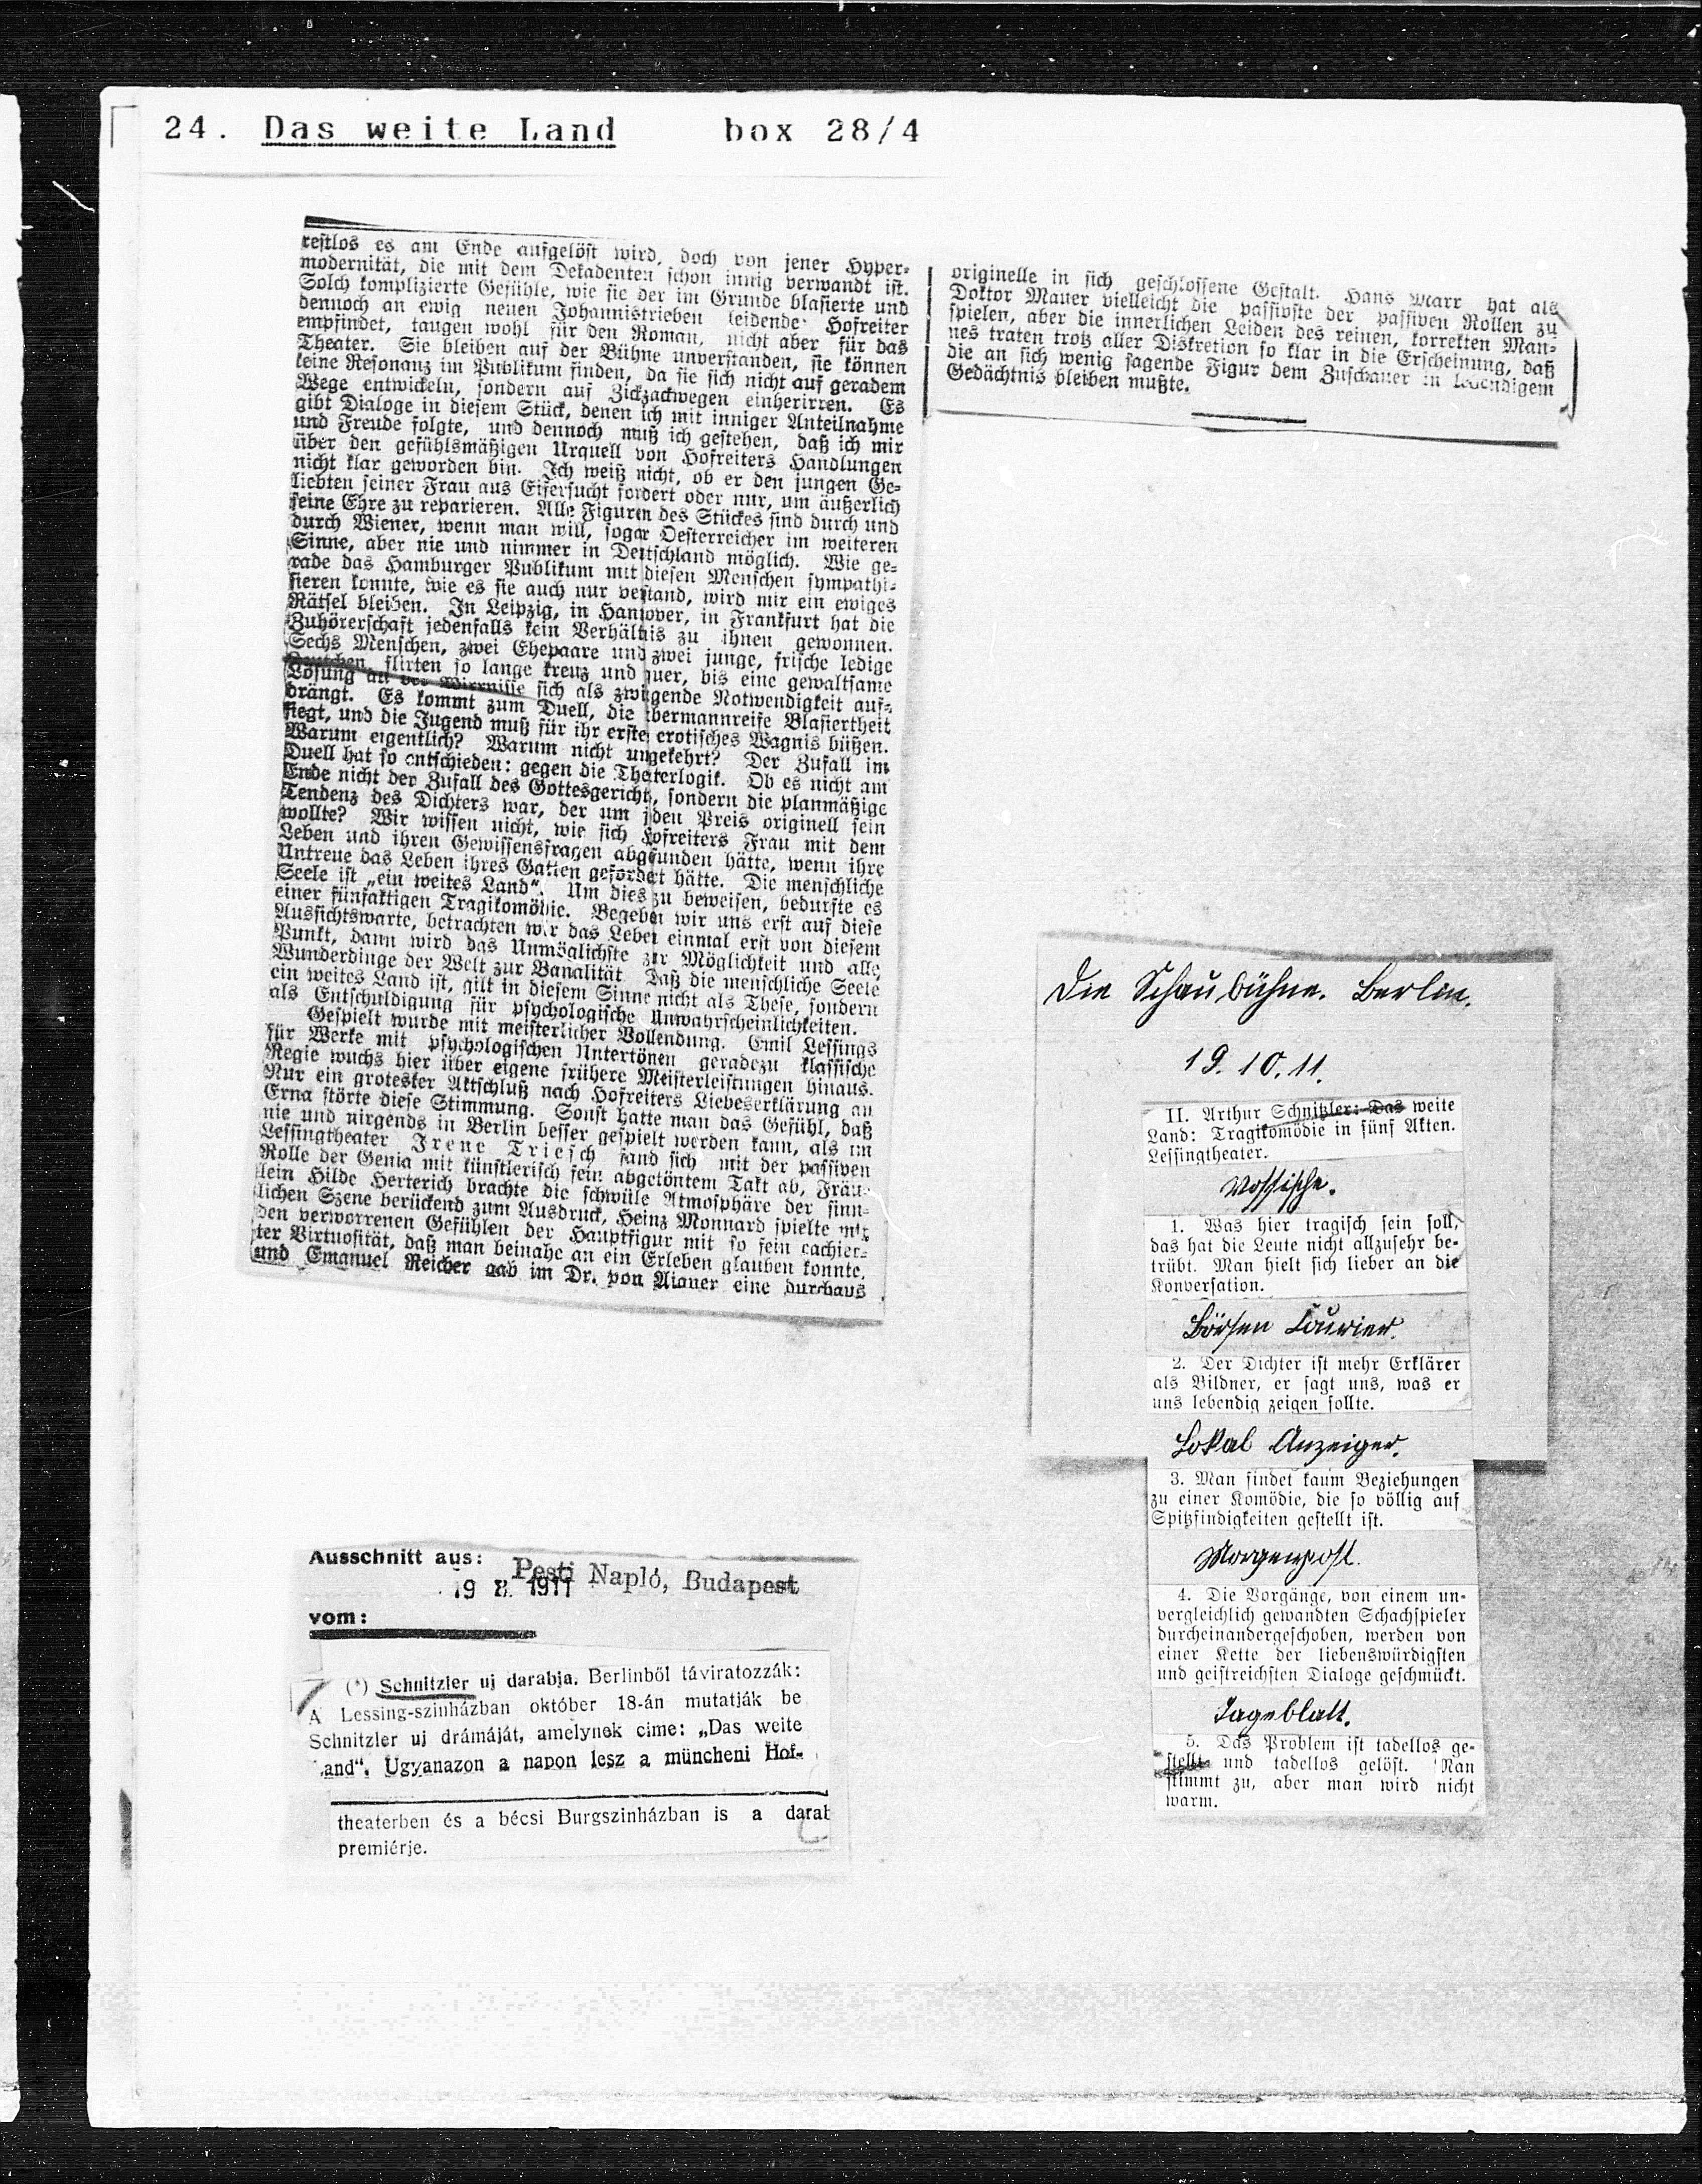 24. Das weite Land box 28/4
restlos es am Ende aufgelöst wird, doch von jener Hyper-
modernität, die mit dem Dekadenten schon innig verwandt ist.
Solch komplizierte Gefühle, wie sie der im Grunde blasierte und
dennoch an ewig neuen Johannistrieben leidende Hofreiter
empfindet, taugen wohl für den Roman, nicht aber für das
Theater. Sie bleiben auf der Bühne unverstanden, sie können
keine Resonanz im Publikum finden, da sie sich nicht auf geradem
Wege entwickeln, sondern auf Zickzackwegen einherirren. Es
gibt Dialoge in diesem Stück, denen ich mit inniger Anteilnahme
und Freude folgte, und dennoch muß ich gestehen, daß ich mir
über den gefühlsmäßigen Urquell von Hofreiters Handlungen
nicht klar geworden bin. Ich weiß nicht, ob er den jungen Ge-
liebten seiner Frau aus Eifersucht fordert oder nur, um äußerlich
seine Ehre zu reparieren. Alle Figuren des Stückes sind durch und
durch Wiener, wenn man will, sogar Oesterreicher im weiteren
Sinne, aber nie und nimmer in Deutschland möglich. Wie ge-
rade das Hamburger Publikum mit diesen Menschen sympathi-
sieren konnte, wie es sie auch nur verstand, wird mir ein ewiges
Rätsel bleiben. In Leipzig, in Hannover, in Frankfurt hat die
Zuhörerschaft jedenfalls kein Verhältnis zu ihnen gewonnen.
Sechs Menschen, zwei Ehepaare und zwei junge, frische ledige
Leutchen, flirten so lange kreuz und quer, bis eine gewaltsame
Lösung all der Wirrnisse sich als zwingende Notwendigkeit auf-
drängt. Es kommt zum Duell, die übermannreife Blasiertheit
siegt, und die Jugend muß für ihr erstes erotisches Wagnis büßen.
Warum eigentlich? Warum nicht umgekehrt? Der Zufall im
Duell hat so entschieden: gegen die Theaterlogik. Ob es nicht am
Ende nicht der Zufall des Gottesgerichts, sondern die planmäßige
Tendenz des Dichters war, der um jeden Preis originell sein
wollte? Wir wissen nicht, wie sich Hofreiters Frau mit dem
Leben und ihren Gewissensfragen abgefunden hätte, wenn ihre
Untreue das Leben ihres Gatten gefordert hätte. Die menschliche
Seele ist „ein weites Land“. Um dies zu beweisen, bedurfte es
einer fünfaktigen Tragikomödie. Begeben wir uns erst auf diese
Aussichtswarte, betrachten wir das Leben einmal erst von diesem
Punkt, dann wird das Unmöglichste zur Möglichkeit und alle
Wunderdinge der Welt zur Banalität. Daß die menschliche Seele
ein weites Land ist, gilt in diesem Sinne nicht als These, sondern
als Entschuldigung für psychologische Unwahrscheinlichkeiten.
Gespielt wurde mit meisterlicher Vollendung. Emil Lessings
für Werke mit psychologischen Untertönen geradezu klassische
Regie wuchs hier über eigene frühere Meisterleistungen hinaus.
Nur ein grotesker Aktschluß nach Hofreiters Liebeserklärung an
Erna störte diese Stimmung. Sonst hatte man das Gefühl, daß
nie und nirgends in Berlin besser gespielt werden kann, als im
Lessingtheater Irene Triesch fand sich mit der passiven
Rolle der Genia mit künstlerisch fein abgetöntem Takt ab, Fräu-
lein Hilde Herterich brachte die schwüle Atmosphäre der sinn-
lichen Szene berückend zum Ausdruck, Heinz Monnard spielte mit
den verworrenen Gefühlen der Hauptfigur mit so fein cachier-
ter Virtuosität, daß man beinahe an ein Erleben glauben konnte,
und Emanuel Reicher gab im Dr. von Aigner eine durchaus
originelle in sich geschlossene Gestalt. Hans Marr hat als
Doktor Mauer vielleicht die passivste der passiven Rollen zu
spielen, aber die innerlichen Leiden des reinen, korrekten Man-
nes traten trotz aller Diskretion so klar in die Erscheinung, daß
die an sich wenig sagende Figur dem Zuschauer in lebendigem
Gedächtnis bleiben mußte.
Die Schaubühne. Berlin.
19. 10. 11.
II. Arthur Schnitzler: Das weite
Land: Tragikomödie in fünf Akten.
Lessingtheater.
Vossische.
1. Was hier tragisch sein soll,
das hat die Leute nicht allzusehr be-
trübt. Man hielt sich lieber an die
Konversation.
Börsen Courier.
2. Der Dichter ist mehr Erklärer
als Bildner, er sagt uns, was er
uns lebendig zeigen sollte.
Lokal Anzeiger.
3. Man findet kaum Beziehungen
zu einer Komödie, die so völlig auf
Spitzfindigkeiten gestellt ist.
Morgenpost.
4. Die Vorgänge, von einem un-
vergleichlich gewandten Schachspieler
durcheinandergeschoben, werden von
einer Kette der liebenswürdigsten
und geistreichsten Dialoge geschmückt.
Tageblatt.
5. Das Problem ist tadellos ge-
stellt und tadellos gelöst. Man
stimmt zu, aber man wird nicht
warm.
Ausschnitt aus: Pesti Napló, Budapest
19 8. 1911
vom:
(*) Schnitzler uj darabja. Berlinből táviratozzák:
A Lessing-szinházban október 18-án mutatják be
Schnitzler uj drámáját, amelynek cime: „Das weite
Land“. Ugyanazon a napon lesz a müncheni Hof-
theaterben és a bécsi Burgszinházban is a darab
premiérje.